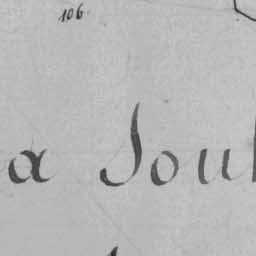 106.
a Soul